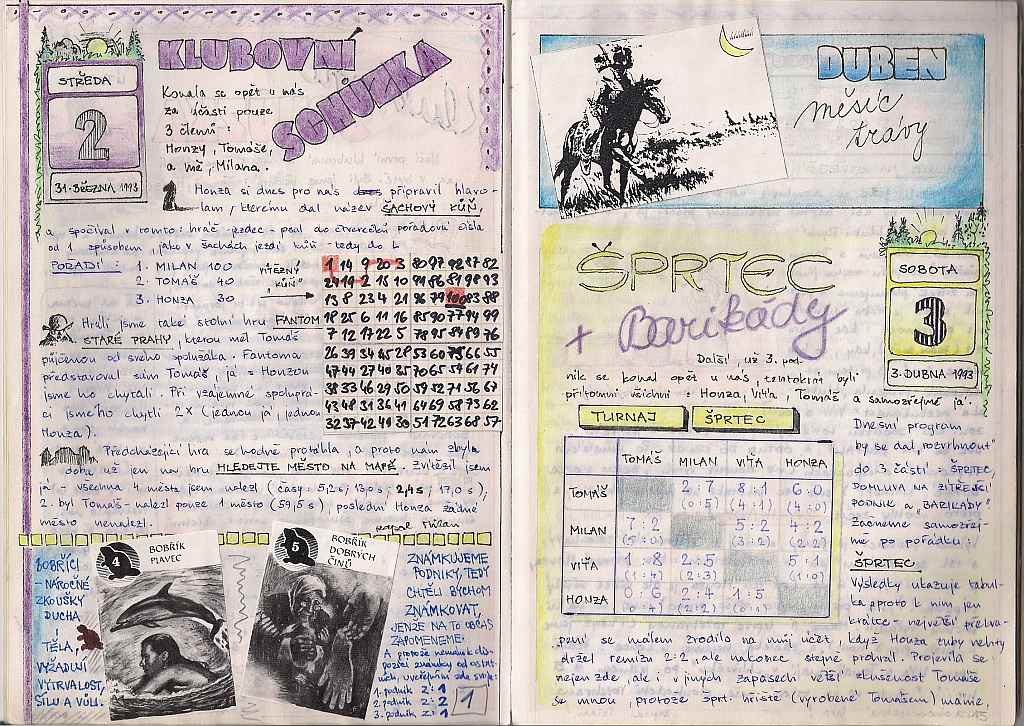 KLUBOVNÍ
SCHŮZKA
STŘEDA
2
31. BŘEZNA 1993
Konala se opět u nás
za účasti pouze
3 členů :
Honzy, Tomáše,
a mě, Milana.
Honza si dnes pro nás připravil hlavo-
lam, kterému dal název ŠACHOVÝ KŮŇ,
a spočíval v tomto: hráč - jezdec - psal do čtverečků pořadová čísla
od 1 způsobem, jako v šachách jezdí kůň - tedy do L
POŘADÍ : 1. MILAN 100
2. TOMÁŠ 40
3. HONZA 30
VÍTĚZNÝ
"KŮŇ"
1 14 9 20 3 80 97 92 87 82
24 19 2 15 10 99 86 81 98 93
13 8 23 4 21 96 79 100 83 88
18 25 6 11 16 85 90 77 94 99
7 12 17 22 5 78 95 84 89 76
26 39 34 45 28 53 60 75 66 55
47 44 27 40 35 70 65 54 61 74
38 33 46 29 50 59 52 71 56 67
43 48 31 36 41 64 69 58 73 62
32 37 42 49 30 51 72 63 68 57
Hráli jsme také stolní hru FANTOM
STARÉ PRAHY, kterou měl Tomáš
půjčenou od svého spolužáka. Fantoma
představoval sám Tomáš, já s Honzou
jsme ho chytali. Při vzájemné spoluprá-
ci jsme ho chytli 2x (jednou já, jednou
Honza).
Předcházející hra se hodně protáhla, a proto nám zbyla
doba už jen na hru HLEDEJTE MĚSTO NA MAPĚ. Zvítězil jsem
já - všechna 4 města jsem nalezl (časy: 5,2 s; 13,0 s; 2,4 s; 17,0 s),
2. byl Tomáš - nalezl pouze 1 město (59,5 s), poslední Honza žádné
město nenalezl.
zapsal Milan
BOBŘÍCI
- NÁROČNÉ
ZKOUŠKY
DUCHA
I
TĚLA,
VYŽADUJÍ
VYTRVALOST,
SÍLU A VŮLI.
4
BOBŘÍK
PLAVEC
5
BOBŘÍK
DOBRÝCH
ČINŮ
ZNÁMKUJEME
PODNIKY, TEDY
CHTĚLI BYCHOM
ZNÁMKOVAT,
JENŽE NA TO OBČAS
ZAPOMENEME.
A protože nemám k dis-
pozici známky od ostat-
ních, uveřejním zde svoje:
1. podnik z : 1
2. podnik z : 2
3. podnik z : 1
1
DUBEN
měsíc
trávy
ŠPRTEC
+ Barikády
SOBOTA
3
3. DUBNA 1993
Další, už 3. pod-
nik se konal opět u nás, tentokrát byli
přítomni všichni : Honza, Víťa, Tomáš a samozřejmě já.
TURNAJ ŠPRTEC
TOMÁŠ MILAN VÍŤA HONZA
TOMÁŠ 2 : 7 8 : 1 6 : 0
(0 : 5) (4 : 1) (4 : 0)
MILAN 7 : 2 5 : 2 4 : 2
(5 : 0) (3 : 2) (2 : 2)
VÍŤA 1 : 8 2 : 5 5 : 1
(1 : 4) (2 : 3) (1 : 0)
HONZA 0 : 6 2 : 4 1 : 5
(0 : 4) (2 : 2) (0 : 1)
Dnešní program
by se dal "rozvrhnout"
do 3 částí : ŠPRTEC,
DOMLUVA NA ZÍTŘEJŠÍ
PODNIK a "BARIKÁDY".
Začneme samozřej-
mě po pořádku :
ŠPRTEC.
Výsledky ukazuje tabul-
ka a proto k nim jen
krátce - největší překva-
pení se málem zrodilo na můj účet, když Honza zuby nehty
držel remízu 2:2, ale nakonec stejně prohrál. Projevila se
nejen zde, ale i v jiných zápasech větší zkušenost Tomáše
se mnou, protože šprt. hřiště (vyrobené Tomášem) máme,
15